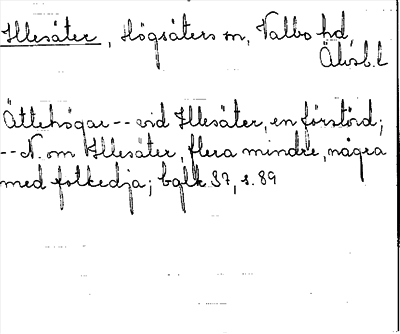 Illesäter, Högsäters sn, Valbo hd,
Älvsb. l
Ättehögar -- vid Illesäter, en förstörd;
-- N. om Illesäter, flera mindre, några
med fotkedja; bglk 37, s. 89